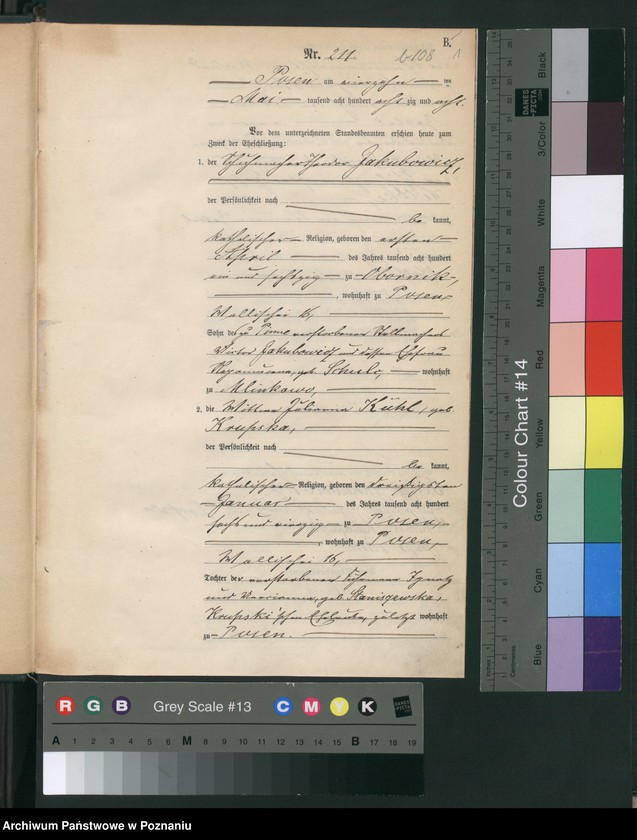 B.
Nr. 211. b 108
Posen am vierzehn ten
Mai tausend acht hundert achtzig und acht.
Vor dem unterzeichneten Standesbeamten erschien heute zum
Zweck der Eheschließung:
1. der Schuhmacher Theodor Jakubowicz,
der Persönlichkeit nach
be kannt,
katholischer Religion, geboren den ersten
April des Jahres tausend acht hundert
ein und sechszig zu Obornik,
, wohnhaft zu Posen,
Wallischei 16,
Sohn des zu verstorbenen Stellmachers
Victor Jakubowicz und dessen Ehefrau
Nepomucena, geb. wohnhaft
zu Mlinkowo,
2. die Wittwe Julianna Kühl, geb.
Krupska,
der Persönlichkeit nach
be kannt,
katholischer Religion, geboren den dreißigsten
Januar des Jahres tausend acht hundert
sechs und vierzig zu Posen,
, wohnhaft zu Posen,
Wallischei 16,
Tochter der verstorbenen Ignatz
und geb. Staniszewska,
Krupski'schen Eheleute, zuletzt wohnhaft
zu Posen.
Colour Chart #14
Black
3/Color
White
Magenta
Red
Yellow
Green
Cyan
Blue
DANES-PICTA
Inches
Centimetres
R G B Grey Scale #13 C M Y K
A 1 2 3 4 5 6 M 8 9 10 11 12 13 14 15 B 17 18 19
Archiwum Państwowe w Poznaniu